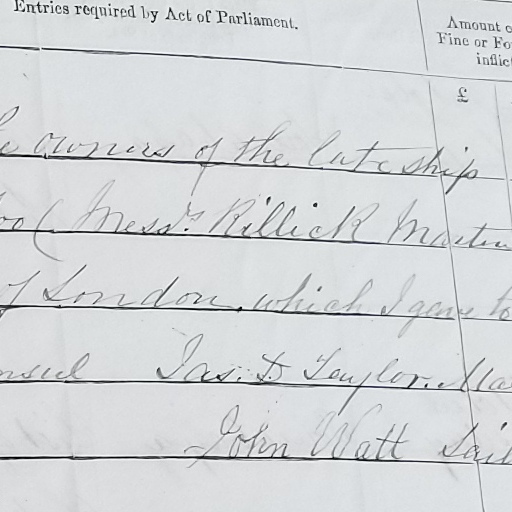 Entries required by Act of Parliament.
Amount o
Fine or Fo
inflic
£
e owners of the late ship
oo (Messrs. Killick Martin
of London, which I gave to
nsul Jas. D Taylor. Ma
John Watt Sail